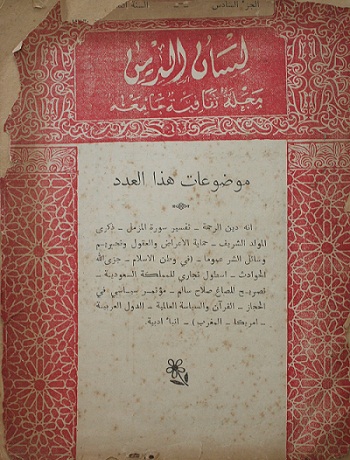 الجزء السادس — السنة
لسان الدين
مجلة ثقافية جامعة
موضوعات هذا العدد
انه دين الرحمة – تفسير سورة المزمل – ذكرى
المولد الشريف – حماية الاعراض والعقول وتحريم
وسائل الشر عموما – (في وطن الاسلام – جزى الله
الحوادث – اسطول تجاري للمملكة السعودية –
تصريح للصاغ صلاح سالم – مؤتمر سياسي في
الحجاز – القرآن والسياسة العالمية – الدول العربية
– امريكا – المغرب) – انباء ادبية.